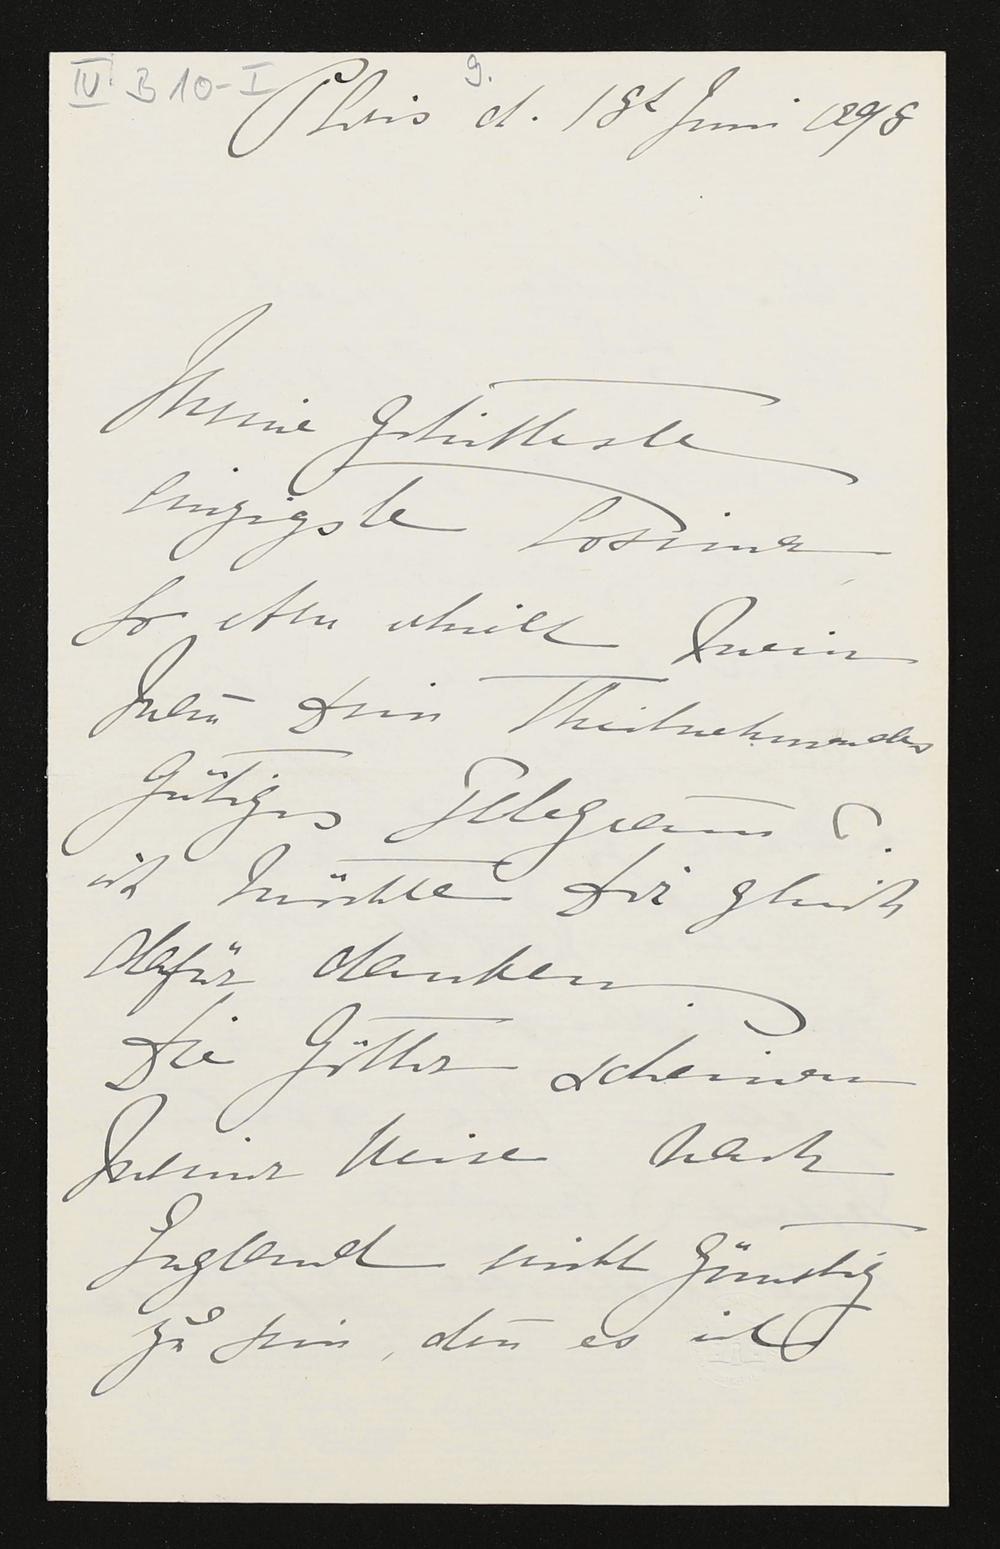 IV B 10-I
9.
Paris d. 18t Juni 1898
Meine Geliebteste
einzigste Cosima
So eben erhielt mein
Man̄ Dein Theilnehmendes
Gütiges Telegramm u.
ich möchte Dir gleich
dafür danken.
Die Götter scheinen
meiner Reise nach
England nicht Günstig
zu sein, den̄ es ist